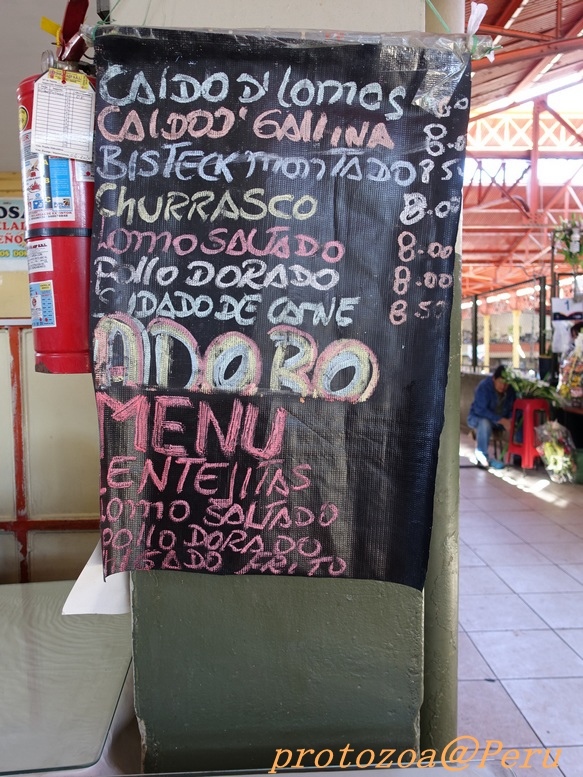 CALDO D' LOMOS 8.0
CALDO D' GALLINA 8.0
BISTECK MONTADO 8.5
CHURRASCO 8.00
LOMO SALTADO 8.00
POLLO DORADO 8.00
DE CARNE 8.50
ADOBO
MENU
LENTEJITAS
LOMO SALTADO
POLLO DORADO
FRITO
protozoa@Peru